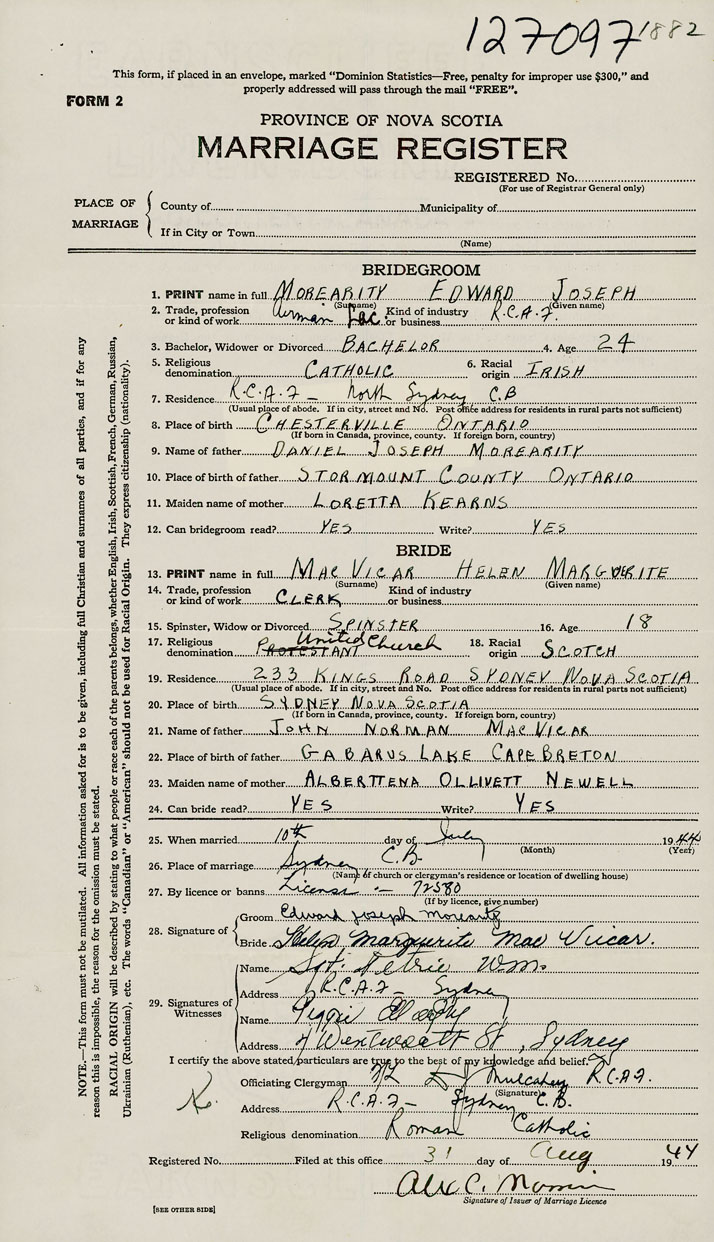 127097 1882
This form, if placed in an envelope, marked "Dominion Statistics—Free, penalty for improper use $300," and
properly addressed will pass through the mail "FREE".
FORM 2
PROVINCE OF NOVA SCOTIA
MARRIAGE REGISTER
REGISTERED No.
(For use of Registrar General only)
PLACE OF MARRIAGE
County of Municipality of
If in City or Town
(Name)
BRIDEGROOM
1. PRINT name in full MOREARITY EDWARD JOSEPH
(Surname) (Given name)
2. Trade, profession or kind of work Airman Lac Kind of industry or business R.C.A.F.
3. Bachelor, Widower or Divorced BACHELOR 4. Age 24
5. Religious denomination CATHOLIC 6. Racial origin IRISH
7. Residence R.C.A.F — North Sydney C.B
(Usual place of abode. If in city, street and No. Post office address for residents in rural parts not sufficient)
8. Place of birth CHESTERVILLE ONTARIO
(If born in Canada, province, county. If foreign born, country)
9. Name of father DANIEL JOSEPH MOREARITY
10. Place of birth of father STORMOUNT COUNTY ONTARIO
11. Maiden name of mother LORETTA KEARNS
12. Can bridegroom read? YES Write? YES
BRIDE
13. PRINT name in full MAC VICAR HELEN MARGUERITE
(Surname) (Given name)
14. Trade, profession or kind of work CLERK Kind of industry or business
15. Spinster, Widow or Divorced SPINSTER 16. Age 18
17. Religious denomination PROTESTANT United Church 18. Racial origin SCOTCH
19. Residence 233 KINGS ROAD SYDNEY NOVA SCOTIA
(Usual place of abode. If in city, street and No. Post office address for residents in rural parts not sufficient)
20. Place of birth SYDNEY NOVA SCOTIA
(If born in Canada, province, county. If foreign born, country)
21. Name of father JOHN NORMAN MAC VICAR
22. Place of birth of father GABARUS LAKE CAPE BRETON
23. Maiden name of mother ALBERTTENA OLLIVETT NEWELL
24. Can bride read? YES Write? YES
25. When married 10th day of July 1944
(Month) (Year)
26. Place of marriage Sydney C.B.
(Name of church or clergyman's residence or location of dwelling house)
27. By licence or banns License :— 72580
(If by licence, give number)
28. Signature of
Groom Edward Joseph Morearity
Bride Helen Marguerite Mac Vicar.
29. Signatures of Witnesses
Name Sgt. Petrie Wm.
Address R.C.A.F — Sydney
Name
Address Wentworth St, Sydney
I certify the above stated particulars are true to the best of my knowledge and belief.
Officiating Clergyman Mulcahey R.C.A.F.
(Signature)
Address R.C.A.F — Sydney C.B.
Religious denomination Roman Catholic
Registered No. Filed at this office 31 day of Aug 1944
Alex C.
Signature of Issuer of Marriage Licence
[SEE OTHER SIDE]
NOTE.—This form must not be mutilated. All information asked for is to be given, including full Christian and surnames of all parties, and if for any
reason this is impossible, the reason for the omission must be stated.
RACIAL ORIGIN will be described by stating to what people or race each of the parents belongs, whether English, Irish, Scottish, French, German, Russian,
Ukrainian (Ruthenian), etc. The words "Canadian" or "American" should not be used for Racial Origin. They express citizenship (nationality).